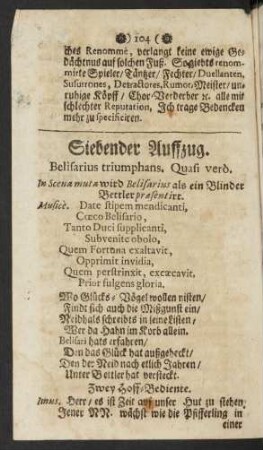 ) 104 (
ches Renommé, verlangt keine ewige Ge-
dächtnus auf solchen Fuß. So giebts renom-
mirte Spieler/ Täntzer/ Fechter/ Duellanten,
Susurrones, Detractores, Rumor-Meister/ un-
ruhige Köpff/ Chor-Verderber ꝛc. alle mit
schlechter Reputation, Ich trage Bedencken
mehr zu specificiren.
Siebender Auffzug.
Belisarius triumphans. Quasi verò.
In Scena muta wird Belisarius als ein Blinder
Bettler præsentirt.
Musicè. Date stipem mendicanti,
Cœco Belisario,
Tanto Duci supplicanti,
Subvenite obolo,
Quem Fortuna exaltavit,
Opprimit invidia,
Quem perstrinxit, excæcavit,
Prior fulgens gloria.
Wo Glücks-Vögel wollen nisten/
Findt sich auch die Mißgunst ein/
Neidhals schreibts in seine Listen/
Wer da Hahn im Korb allein.
Belisari hats erfahren/
Den das Glück hat außgeheckt/
Den der Neid nach etlich Jahren/
Unter Bettler hat versteckt.
Zwey Hoff-Bediente.
Imus. Herr/ es ist Zeit auf unser Hut zu stehen,
Jener NN. wächst wie die Pfifferling in
einer